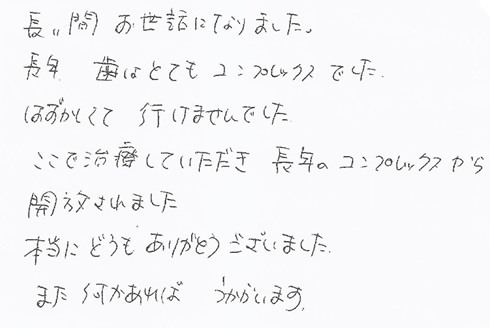 長い間 お世話になりました。
長年 歯はとても コンプレックスでした.
はずかしくて 行けませんでした
ここで治療していただき 長年のコンプレックスから
開放されました
本当に どうも ありがとう ございました.
また 何かあれば うかがいます.